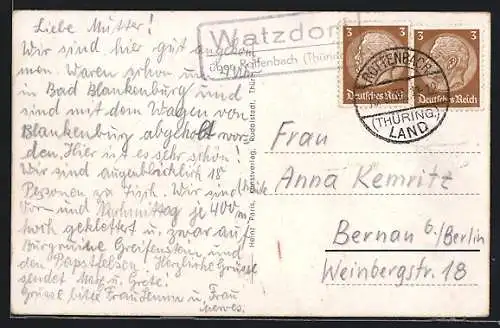 Liebe Mutter!
Wir sind hier gut angekom
men. Waren schon um
in Bad Blankenburg und
sind mit dem Wagen von
Blankenburg abgeholt wor
den. Hier ist es sehr schön!
Wir sind augenblicklich 18
Personen zu Tisch. Wir sind heute
Vor- und Nachmittag je 400 m
hoch geklettert u. zwar auf
Burgruine Greifenstein und
den Papstfelsen. Herzliche Grüsse
sendet Max u. Grete.
Grüsse bitte Frau u. Frau
Watzdorf
über Rottenbach (Thüringer
3 3
Deutsches Reich
3 3
Deutsches Reich
ROTTENBACH
(THÜRING.)
LAND
Heinz Paris, Kunstverlag, Rudolstadt, Thür.
Frau
Anna Kemritz
Bernau b./Berlin
Weinbergstr. 18